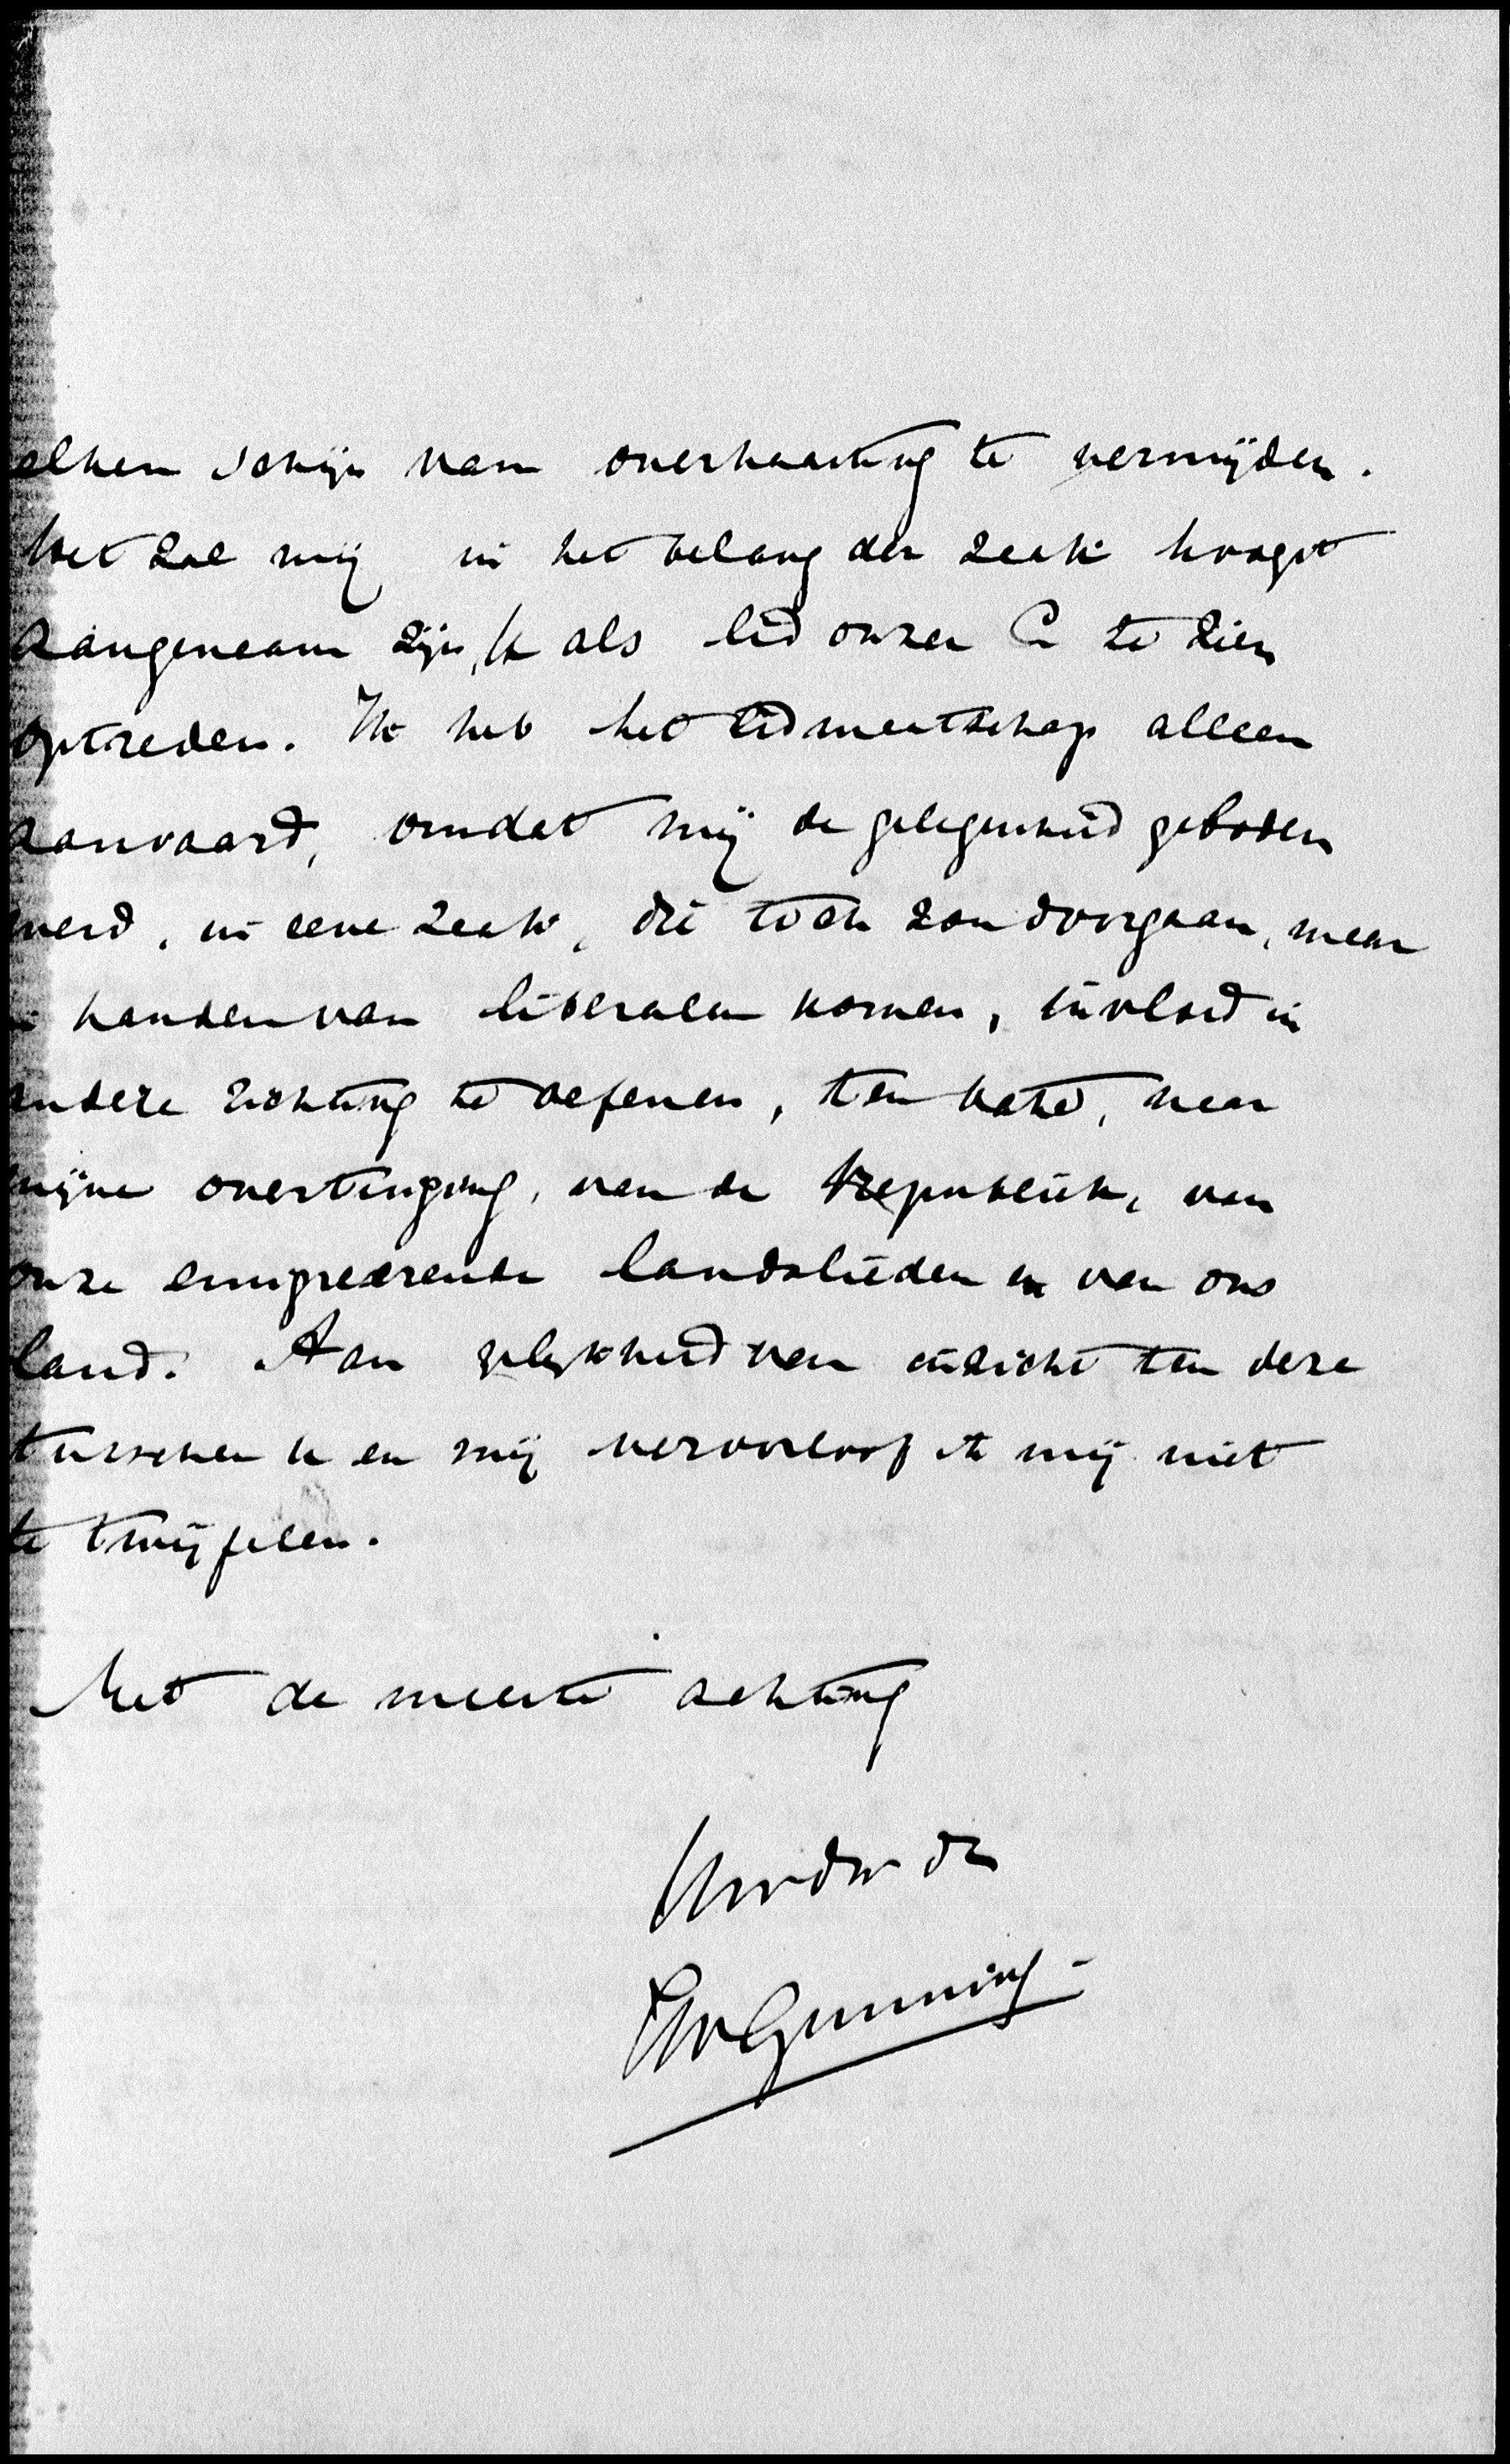 elken schijn van overhaasting te vermijden.
Het zal mij in het belang der zaak hoogst
aangenaam zijn, U als lid onzer C te zien
optreden. Ik heb het lidmaatschap alleen
aanvaard, omdat mij de gelegenheid geboden
werd, in eene zaak, die toch zou doorgaan, maar
in handen van liberalen komen, invloed in
andere richting te oefenen, ten bate, naar
mijne overtuiging, van de Republiek, van
onze emigreerende landslieden en van ons
land. Aan gelijkheid van inzicht ten deze
tusschen U en mij veroorloof ik mij niet
te twijfelen.
Met de meeste achting
Uw dw dr
JW Gunning